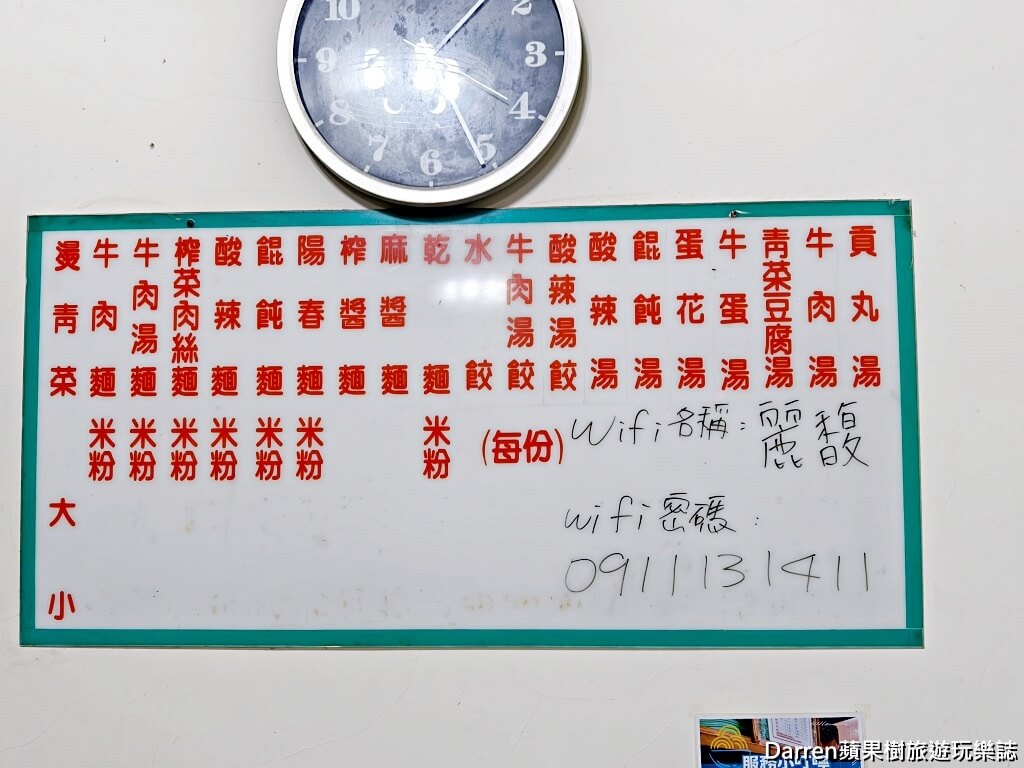 10
2
9
3
8
4
7
6
5
貢丸湯
牛肉湯
青菜豆腐湯
牛蛋湯
蛋花湯
餛飩湯
酸辣湯
酸辣湯餃
牛肉湯餃
水餃
(每份)
乾麵 米粉
麻醬麵
榨醬麵
陽春麵 米粉
餛飩麵 米粉
酸辣麵 米粉
榨菜肉絲麵 米粉
牛肉湯麵 米粉
牛肉麵 米粉
燙青菜
大
小
Wifi名稱:麗馥
wifi密碼:
0911131411
Darren蘋果樹旅遊玩樂誌